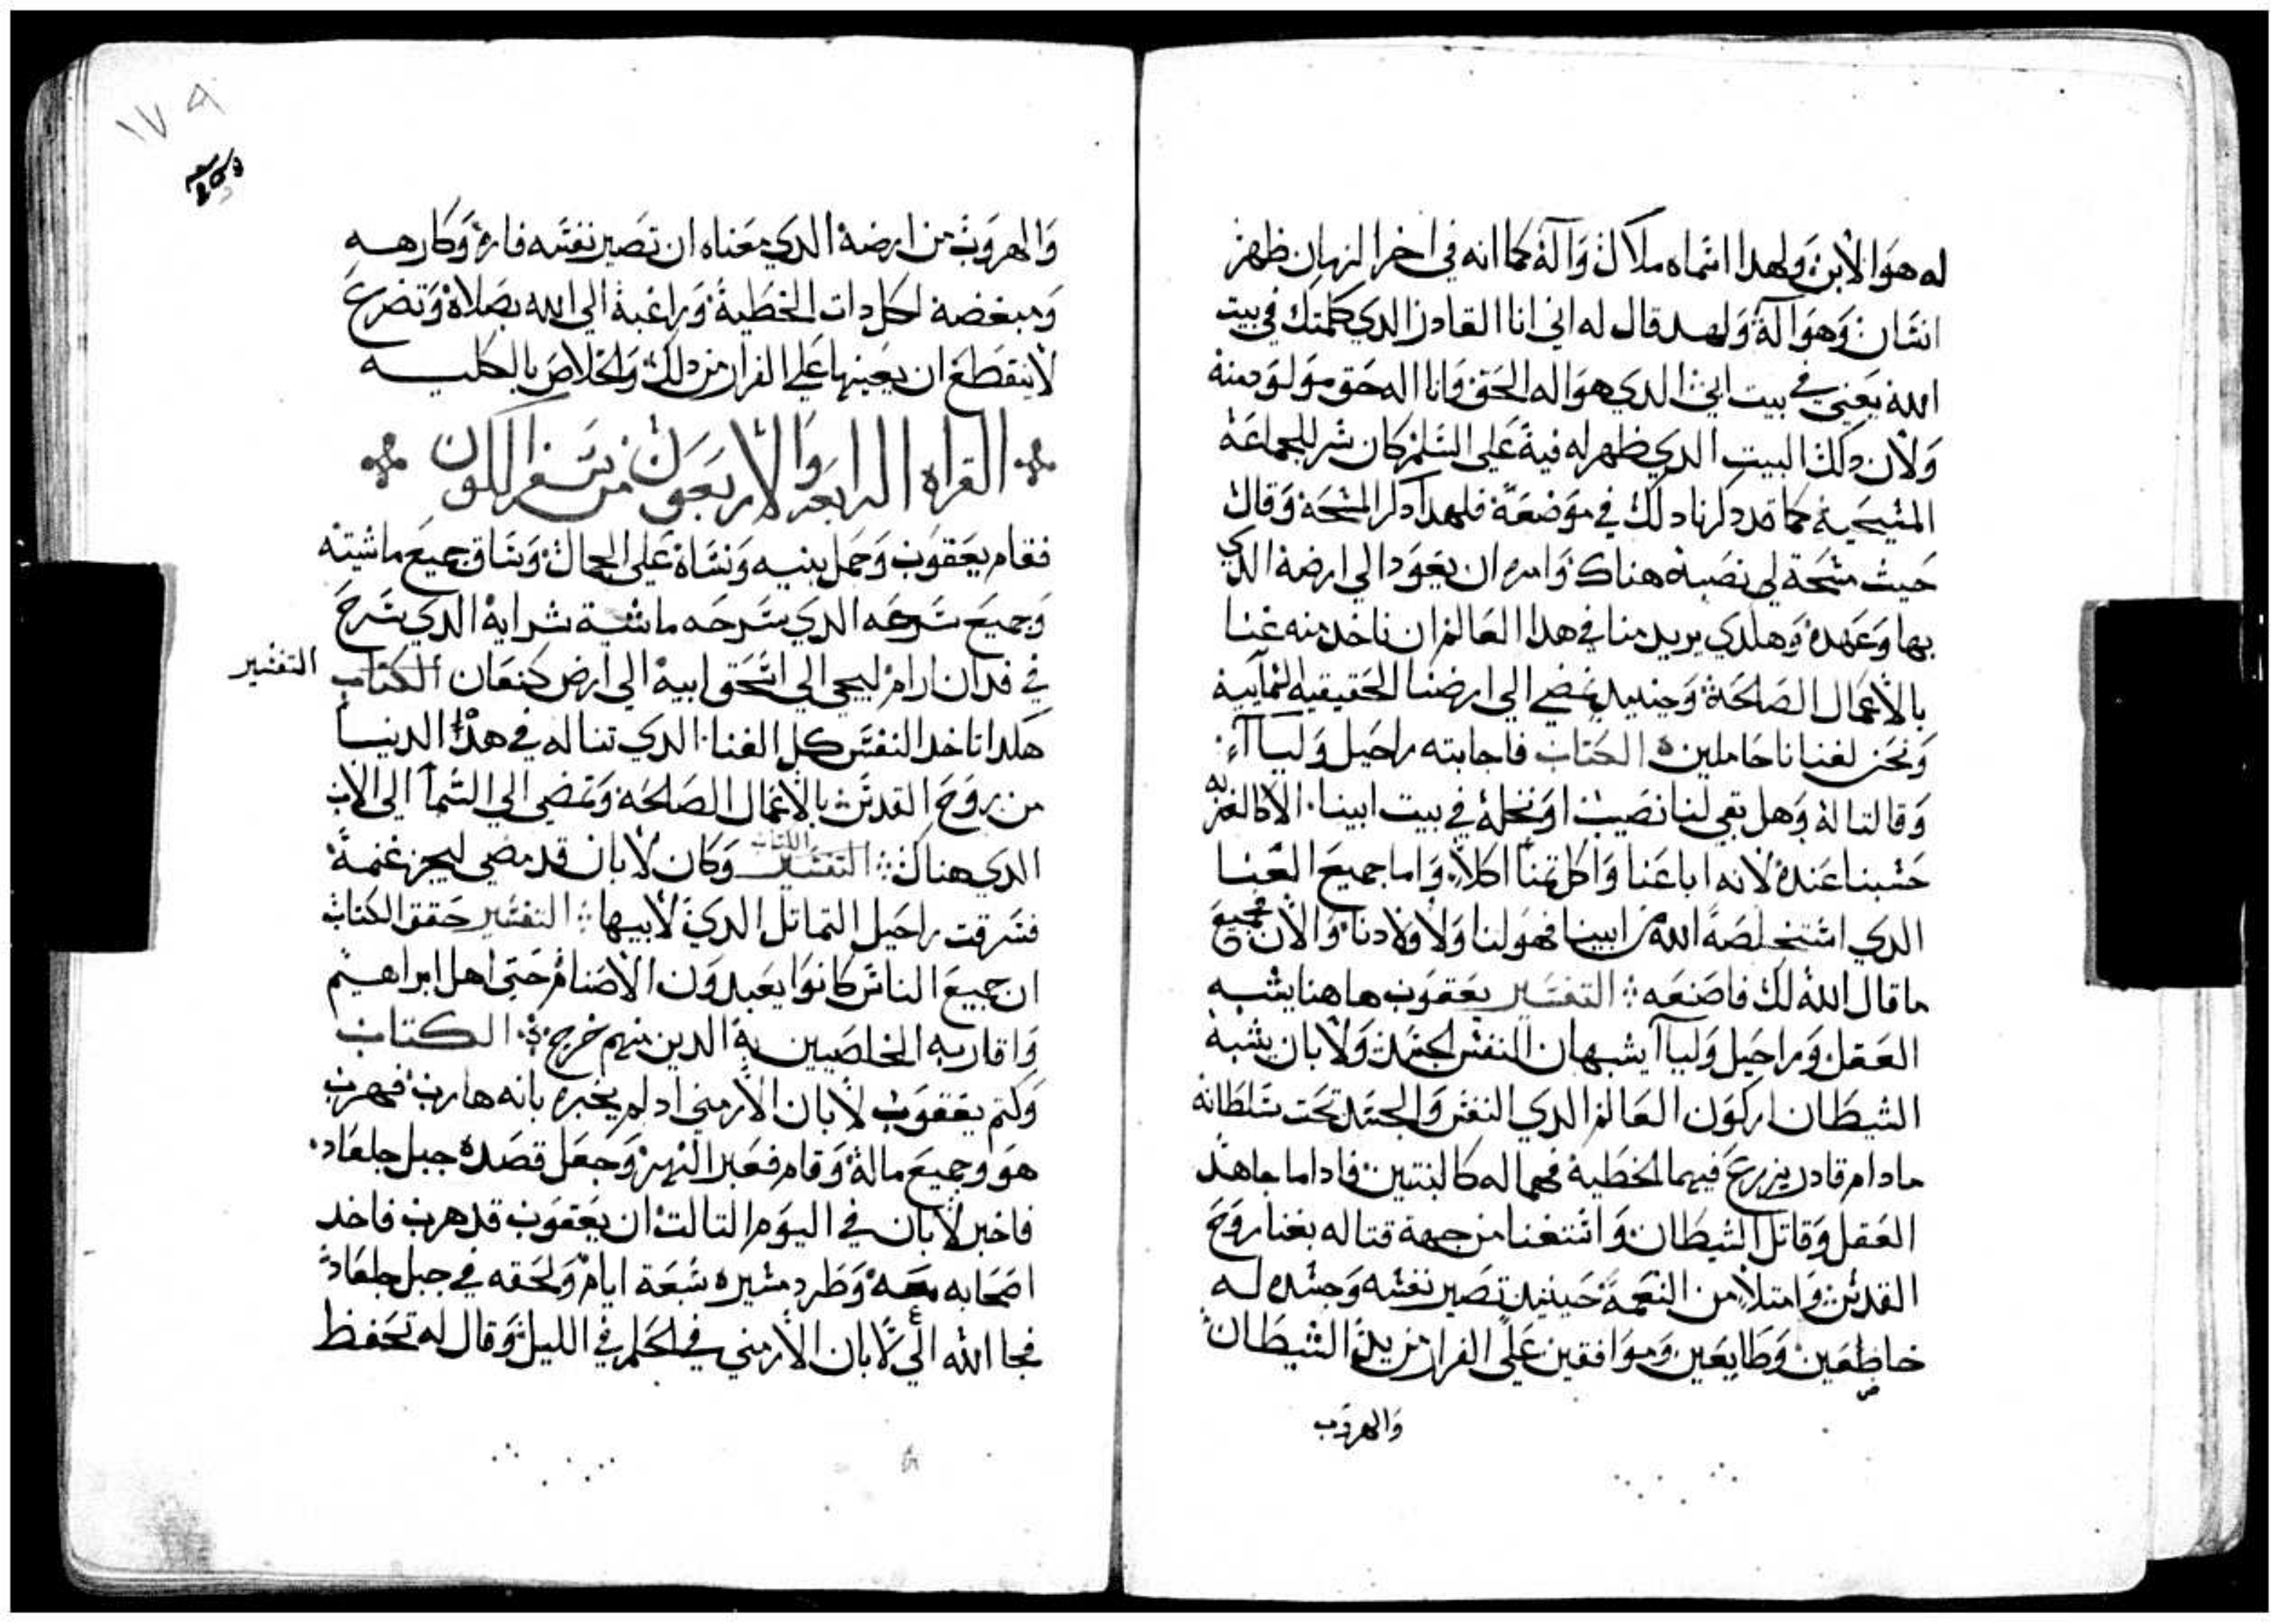 له هو الابن ولهدا اسماه ملاك واله كما انه في اخر الزمان ظهر
انسان وهو اله ولهد قال له اني انا القادر الدي كلمتك في بيت
الله يعني في بيت ابي الدي هو اله الحق وانا اله حق مولود منه
ولان دلك البيت الدي ظهر له فيه على السلم كان سر للجماعة
المسيحية كما قد دكرنا دلك في موضعه فلهدا دكر المسحه وقال
حيث مسحة لي نصبه هناك وامره ان يعود الي ارضه الدي
بها وعهده وهكدي يريد منا في هدا العالم ان ناخد منه غنا
بالاعمال الصالحة وحينيد نمضي الي ارضنا الحقيقيه السمآييه
ونحن لغنانا حاملين الكتاب فاجابته راحيل وليا
وقالتا له وهل بقي لنا نصيب او نحله في بيت ابينا الا كالغربه
حسبنا عنده لانه اباعنا واكل تمننا اكلا واما جميع الغنا
الدي استخلصه الله من ابينا فهو لنا ولاولادنا والان فجميع
ما قال الله لك فاصنعه التفسير يعقوب هاهنا يشبه
العقل وراحيل وليآ يشبهان النفس الجسد ولابان يشبه
الشيطان اركون العالم الدي النفس والجسد تحت سلطانه
ما دام قادر يزرع فيهما الخطية فهما له كالبنتين فادا ما جاهد
العقل وقاتل الشيطان واستغنا من جهة قتاله بغنا روح
القدس وامتلا من النعمة حينيد تصير نفسه وجسده له
خاضعين وطايعين وموافقين على الفرار من يد الشيطان
والهروب
١٧٩
والهروب من ارضه الدي معناه ان تصير نفسه فاره وكارهه
ومبغضه لكل دات الخطية وراغبة الي الله بصلاة وتضرع
لا ينقطع ان يعينها على الفرار من دلك والخلاص بالكليه
القراه الرابعه والاربعون من سفر الكون
فقام يعقوب وحمل بنيه ونساه على الجمال وساق جميع ماشيته
وجميع سرحه الدي سرحه ماشية شرايه الدي سرح
في فدان ارام ليجي الي اسحق ابيه الي ارض كنعان الكتاب التفسير
هكدا تاخد النفس كل الغنا الدي تناله في هده الدنيا
من روح القدس بالاعمال الصالحه وتمضي الي السمآ الي الاب
الدي هناك التفسير الكتاب وكان لابان قد مضي ليجز غنمه
فسرقت راحيل التماتل الدي لابيها التفسير حقق الكتاب
ان جميع الناس كانوا يعبدون الاصنام حتى اهل ابراهيم
واقاربه الخلصيين به الدين منهم خرج الكتاب
وكتم يعقوب لابان الارمني اد لم يخبره بانه هارب فهرب
هو وجميع ماله وقام فعبر النهر وجعل قصده جبل جلعاد
فاخبر لابان في اليوم التالت ان يعقوب قد هرب فاخد
اصحابه معه وطرد مسيره سبعة ايام ولحقه في جبل جلعاد
فجا الله الي لابان الارمني في الحلم في الليل وقال له تحفظ